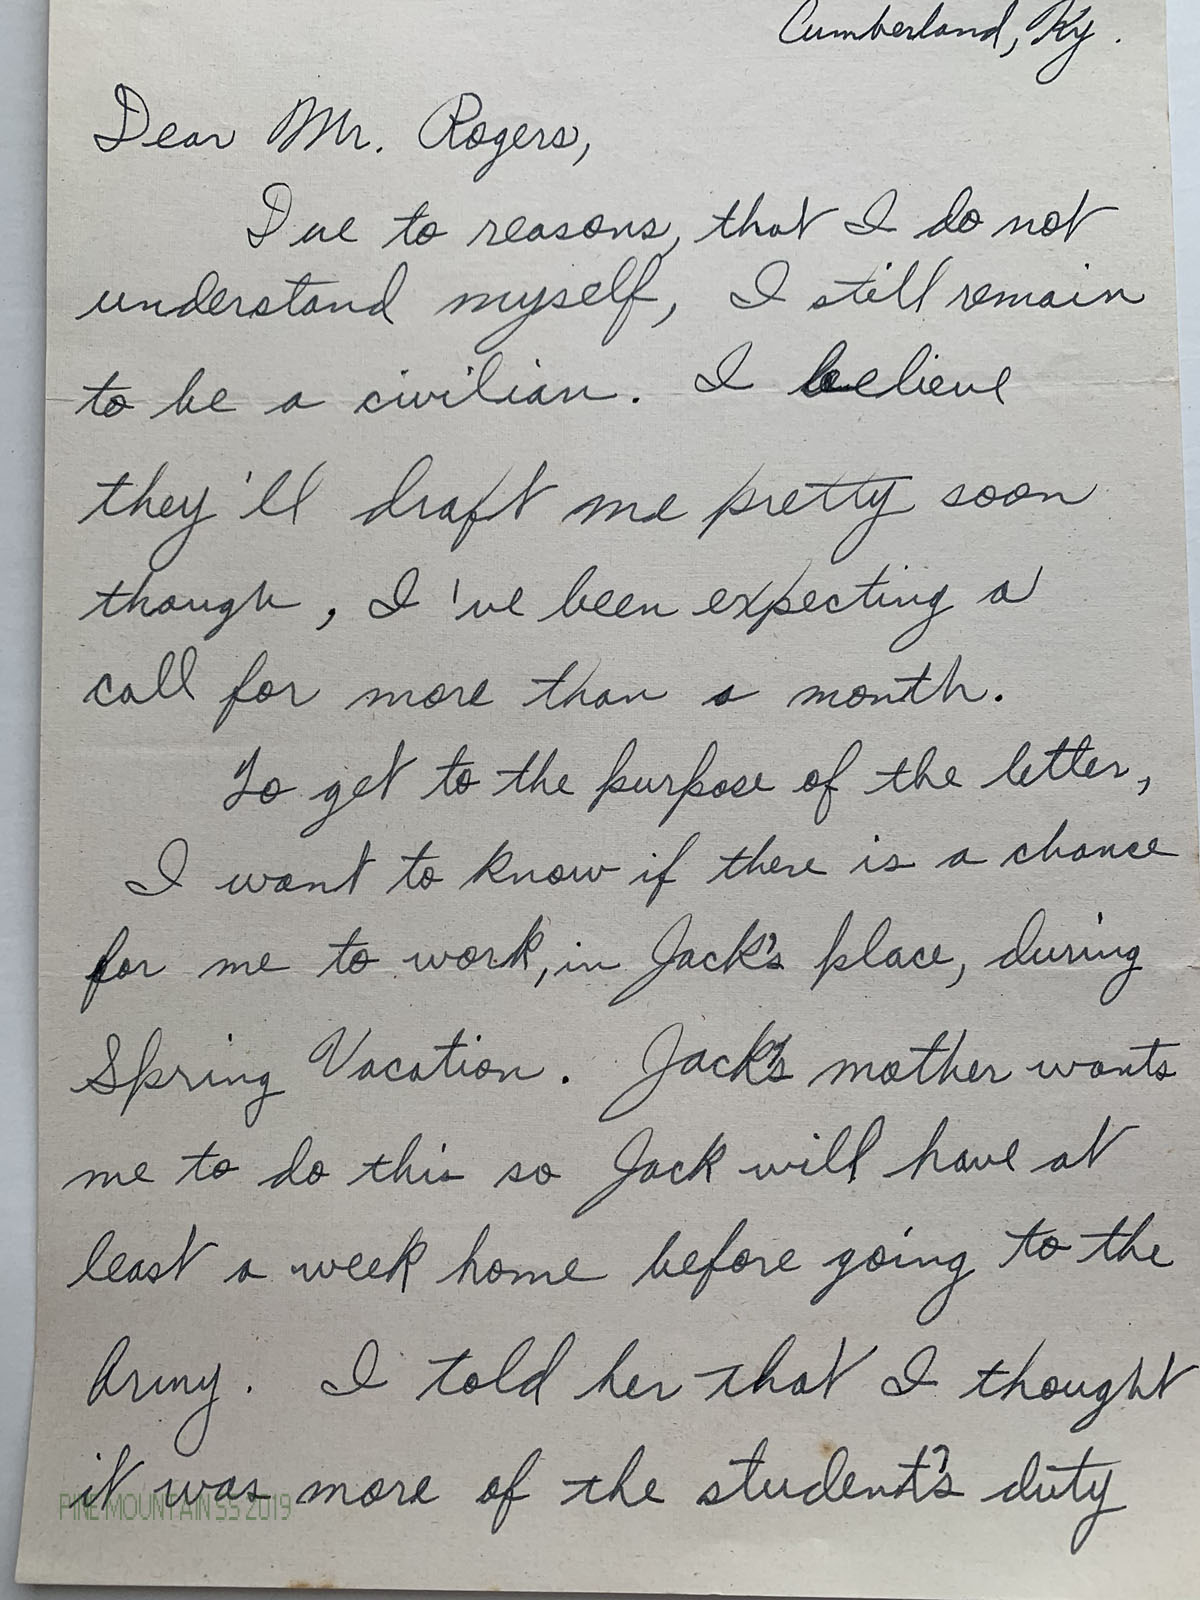 Cumberland, Ky.
Dear Mr. Rogers,
Due to reasons, that I do not
understand myself, I still remain
to be a civilian. I believe
they'll draft me pretty soon
though, I've been expecting a
call for more than a month.
To get to the purpose of the letter,
I want to know if there is a chance
for me to work, in Jack's place, during
Spring Vacation. Jack's mother wants
me to do this so Jack will have at
least a week home before going to the
Army. I told her that I thought
it was more of the student's duty
PINE MOUNTAIN SS 2019